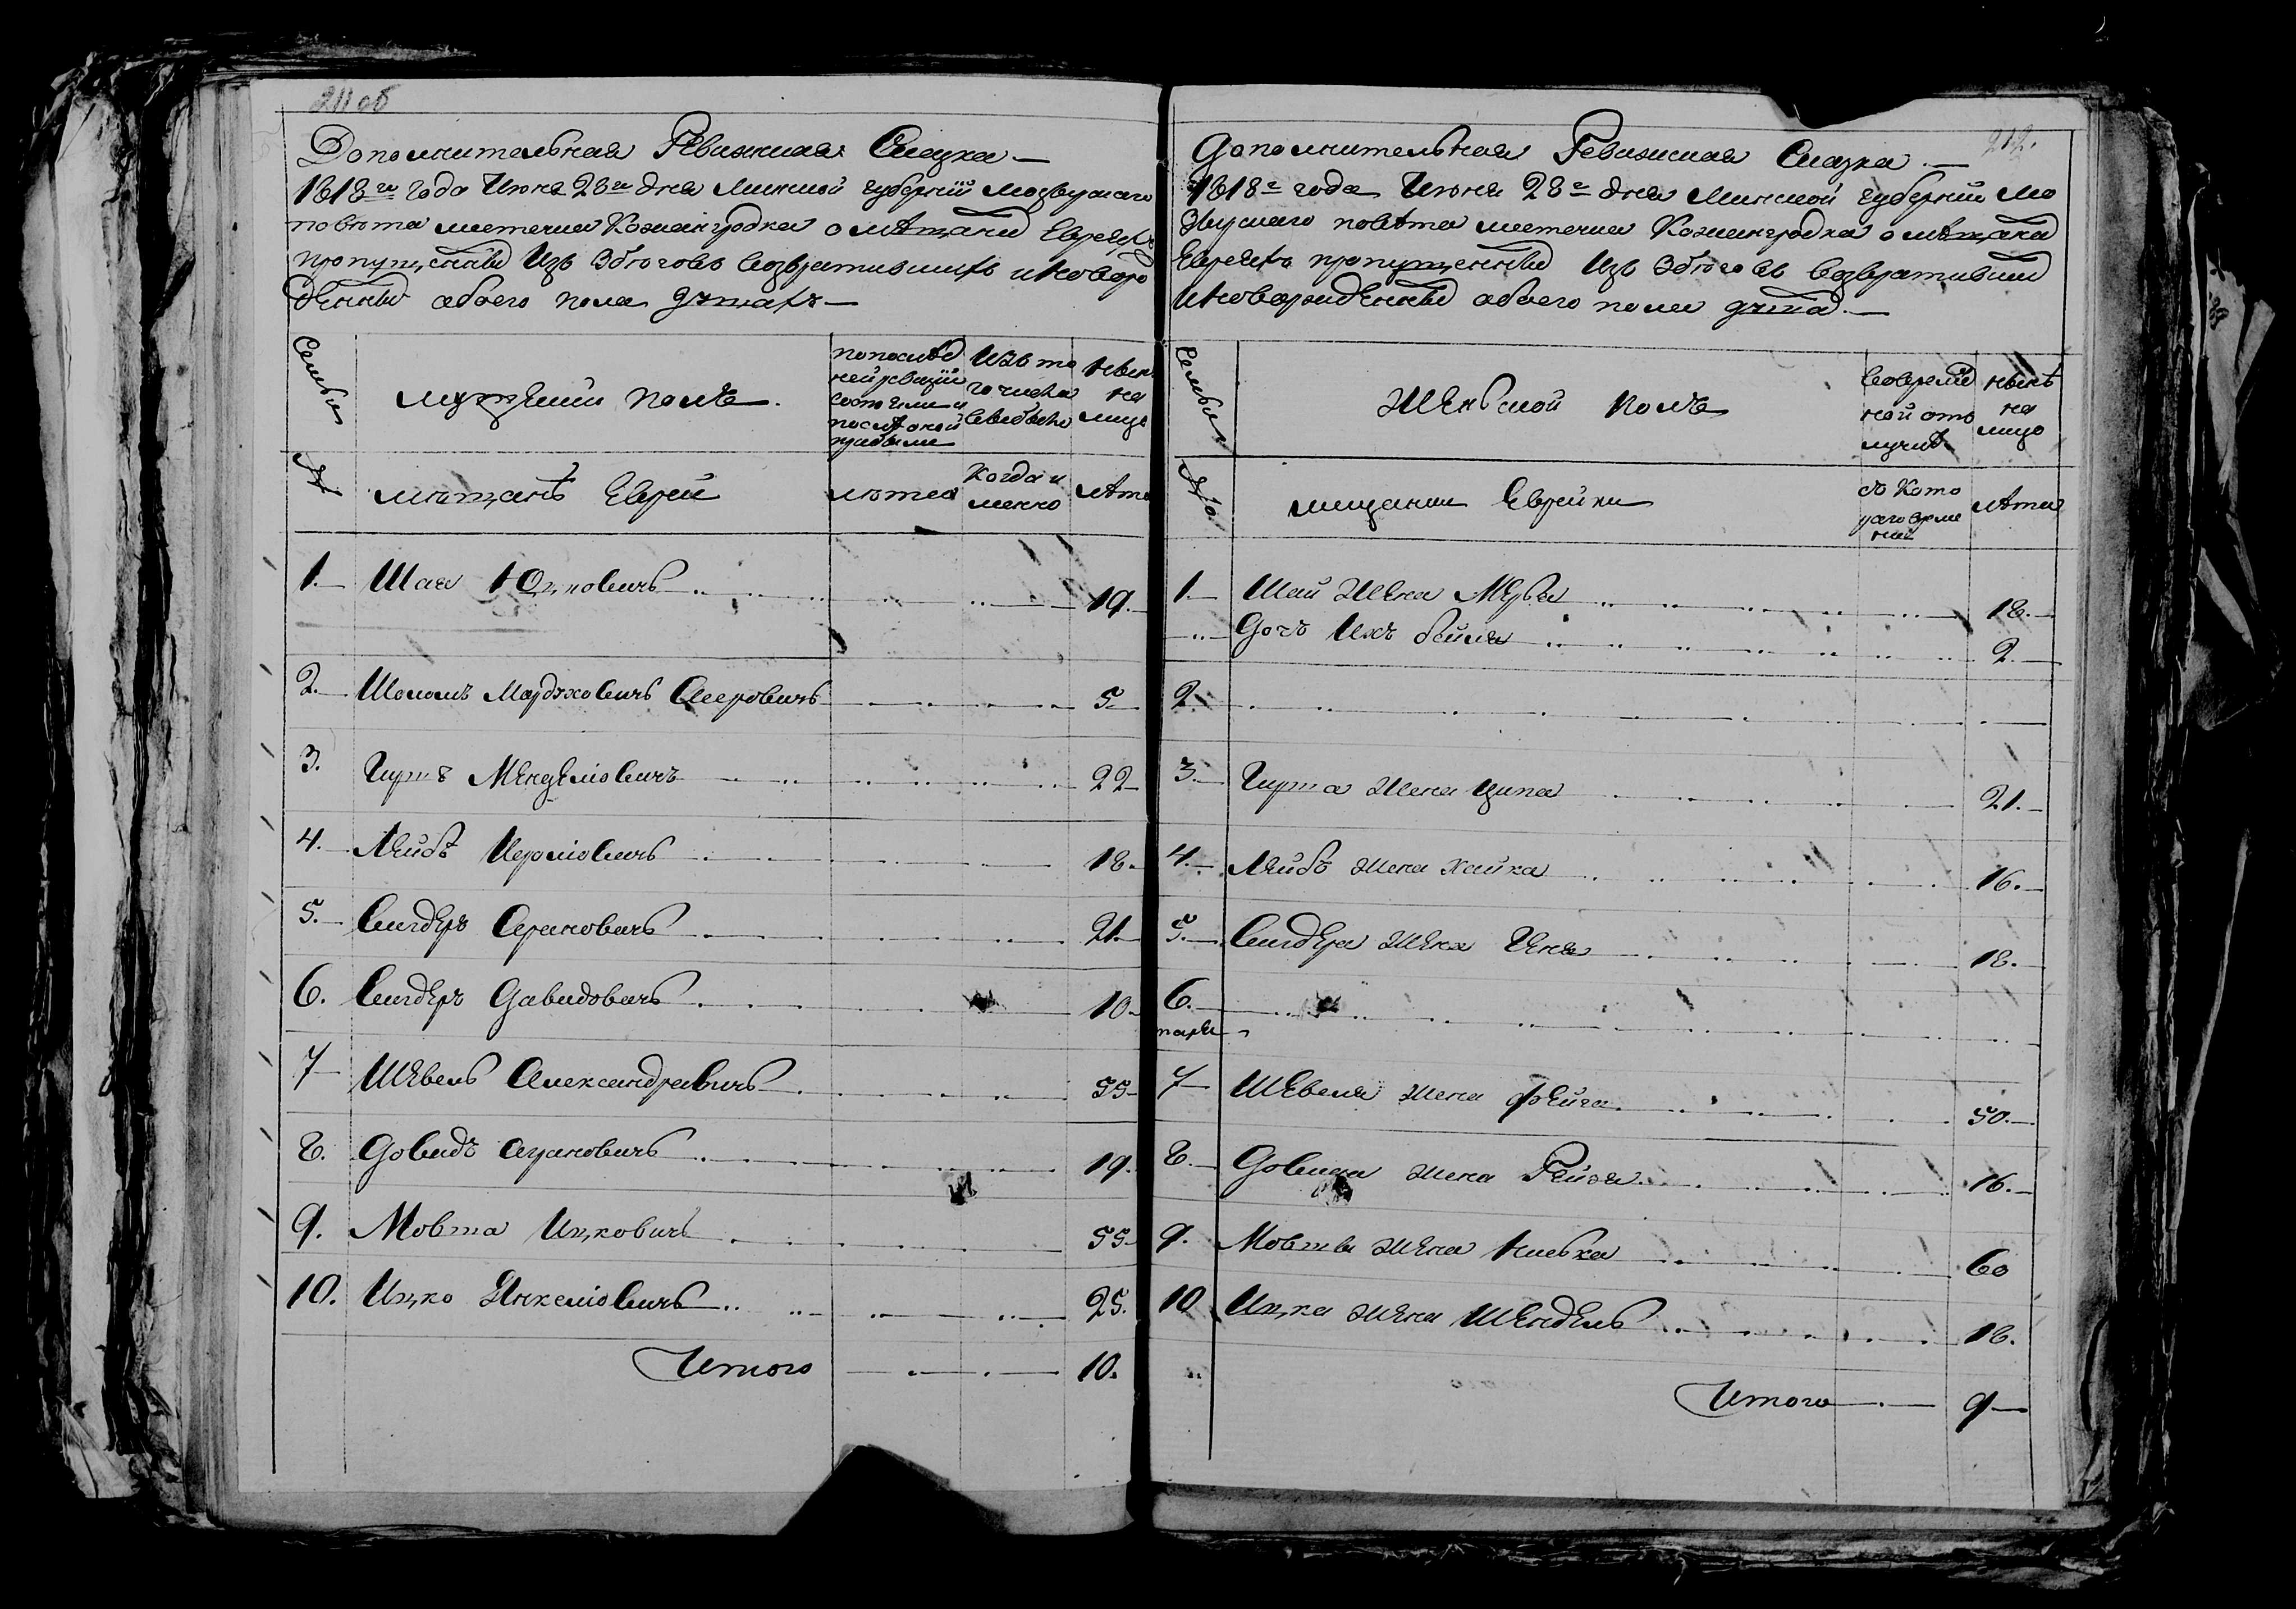 211 об
Дополнительная Ревижская Сказка
1818го года Июня 28го дня Минской губернiи Мозырскаго
повѣта местечка Кожангродка о мѣщанахъ Евреяхъ
пропущенныхъ Изъ Збѣговъ возвратившихъ и новорож
денныхъ обоего пола душахъ
Семьи
мужеский полъ
по послед
ней ревизiи
состояли и
после оной
прибыли
Изъ то
го числа
выбыло
ныне
на
лицо
№
мещанъ Еврей
лета
Когда и
менно
лѣта
1. Шая Юцковичъ 19.
2. Шоломъ Мордуховичъ 5
3. Гиршъ Менделiовичъ 22
4. Лейбъ 18.
5. 21.
6. Давидовичъ 10
7 Шевель Александровичъ 55
8. Довидъ 19.
9. Мовша Ицковичъ 55
10. Ицко Янкелiовичъ 25.
Итого 10.
212.
Дополнительная Ревижская Сказка
1818го года Июня 28го дня Минской губернiи Мо
зырскаго повѣта местечка Кожангродка о мѣщанахъ
Евреяхъ пропущенныхъ Изъ Збѣговъ возвратившихъ
и новорожденныхъ обоего пола душахъ
Семьи
Женской полъ
Во времен
ной отъ
лучке
ныне
на
лицо
№
мещанки Еврейки
съ Кото
раго време
ни
лѣта
1. Шаи Жена 18.
Дочъ Ихъ Бейля 2
2.
3. Гирша Жена Ципа 21.
4. Лейбъ жена Хайка 16.
5. Жена 18.
6.
7 Шевеля жена Фейга 50.
8. Довида жена Рейза 16.
9. Мовши Жена 60
10 Ицка Жена Шендель 18.
Итого 9